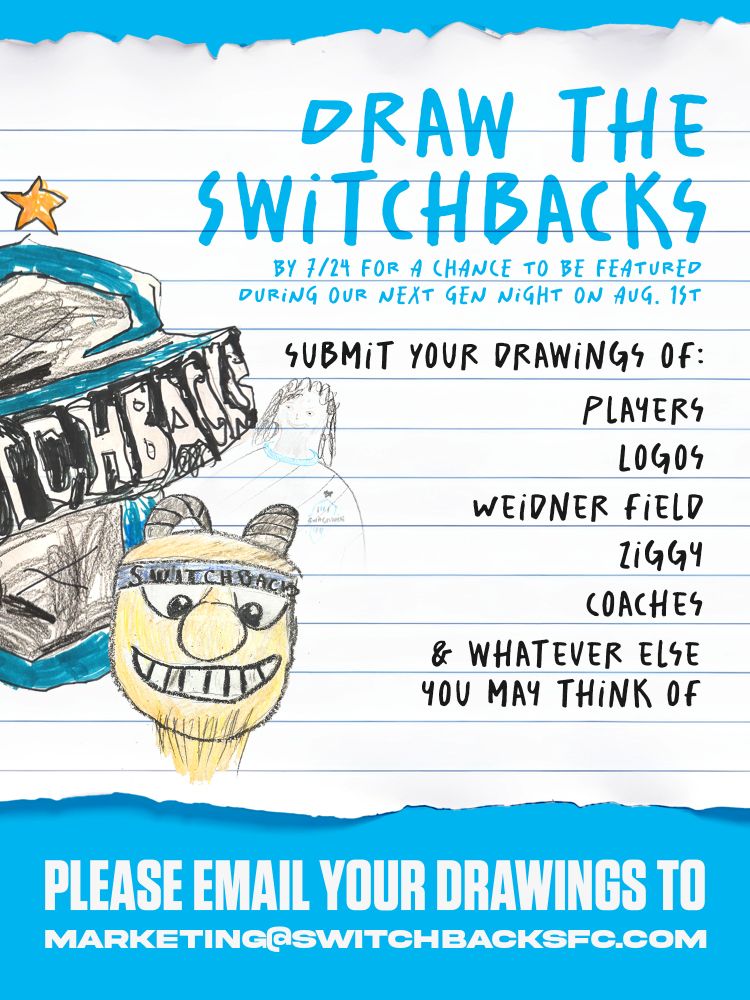 DRAW THE
SWITCHBACKS
BY 7/24 FOR A CHANCE TO BE FEATURED
DURING OUR NEXT GEN NIGHT ON AUG. 1ST
SUBMIT YOUR DRAWINGS OF:
PLAYERS
LOGOS
WEIDNER FIELD
ZIGGY
COACHES
& WHATEVER ELSE
YOU MAY THINK OF
TCHBACKS
SWITCHBACKS
PLEASE EMAIL YOUR DRAWINGS TO
MARKETING@SWITCHBACKSFC.COM